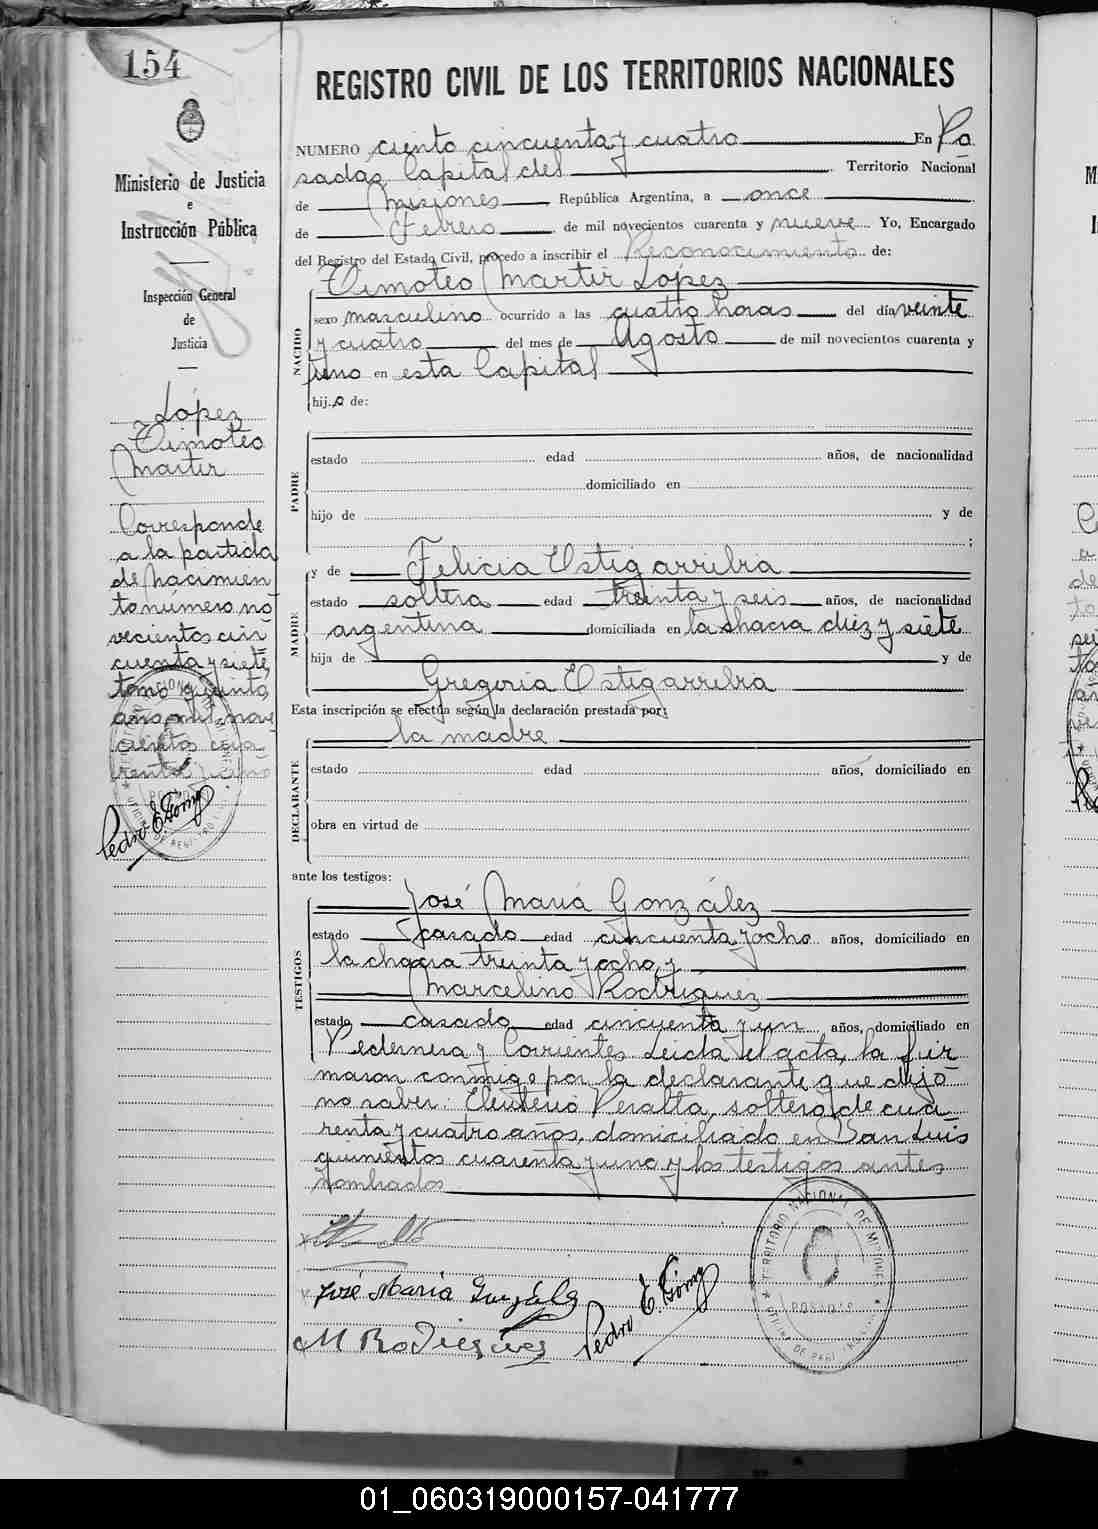 154
REGISTRO CIVIL DE LOS TERRITORIOS NACIONALES
Ministerio de Justicia
e
Instrucción Pública
Inspección General
de
Justicia
López
Timoteo
Martir
Corresponde
a la partida
de nacimien
to número no
vecientos cin
cuenta y siete,
tomo quinto,
año mil nove
cientos cua
renta y uno
Pedro E. Gómez
NUMERO ciento cincuenta y cuatro En Po
sadas, Capital del Territorio Nacional
de Misiones República Argentina, a once
de Febrero de mil novecientos cuarenta y nueve Yo, Encargado
del Registro del Estado Civil, procedo a inscribir el Reconocimiento de:
Timoteo Martir López
NACIDO
sexo masculino ocurrido a las cuatro horas del día veinte
y cuatro del mes de Agosto de mil novecientos cuarenta y
uno en esta Capital
hij.o de:
PADRE
estado edad años, de nacionalidad
domiciliado en
hijo de y de
;
MADRE
y de Felicia Estigarribia
estado soltera edad treinta y seis años, de nacionalidad
argentina domiciliada en la chacra diez y siete
hija de y de
Gregoria Estigarribia
Esta inscripción se efectúa según la declaración prestada por:
la madre
DECLARANTE
estado edad años, domiciliado en
obra en virtud de
ante los testigos:
TESTIGOS
José María González
estado casado edad cincuenta y ocho años, domiciliado en
la chacra treinta y ocho, y
Marcelino Rodríguez
estado casado edad cincuenta y un años, domiciliado en
Pedernera y Corrientes. Leida el acta, la fir
maron conmigo por la declarante que dijo
no saber: Eleuterio Peralta, soltero, de cua
renta y cuatro años, domiciliado en San Luis
quinientos cuarenta y uno, y los testigos antes
nombrados
José María González
M Rodriguez
Pedro E. Gómez
TERRITORIO NACIONAL DE MISIONES
POSADAS
01_060319000157-041777